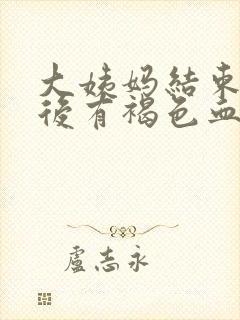 大姨妈結束
後有褐色血
盧志永